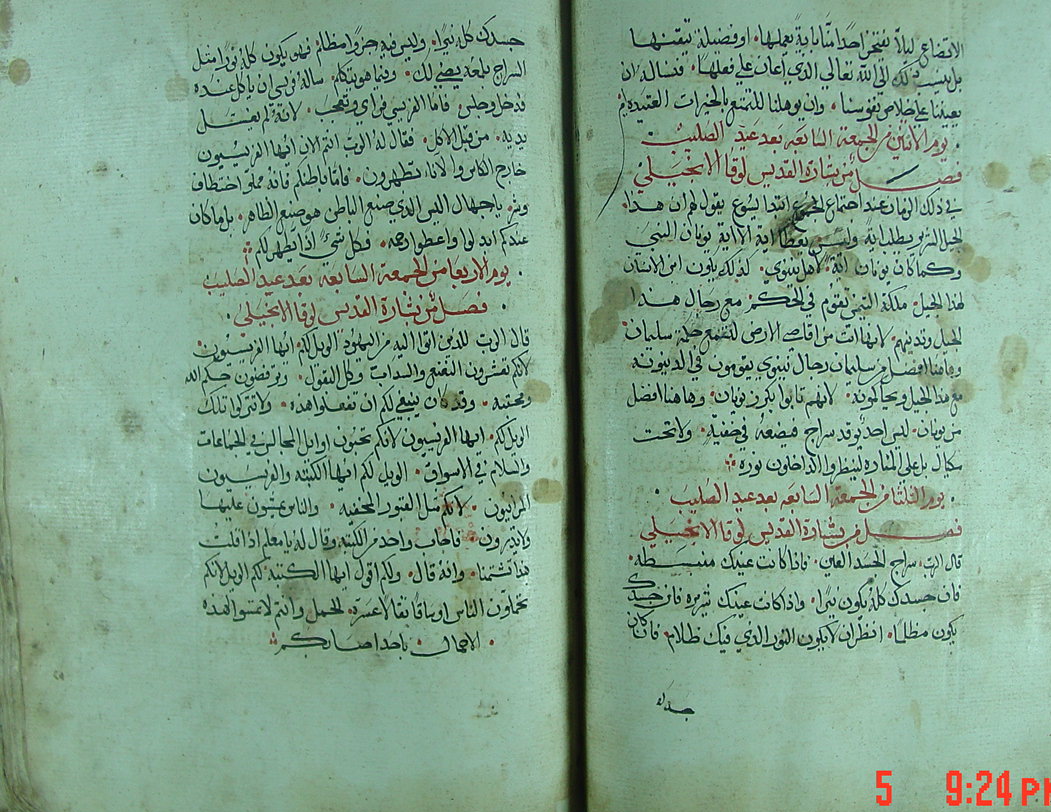 الاتضاع ليلا يفتخر احدا منا باية يعملها. او فضيلة يتقنها
بل ينسب ذلك الي الله تعالي الذي اعان علي فعلها. فنساله ان
يعيننا علي خلاص نفوسنا. وان يوهلنا للتمتع بالخيرات العتيدة
يوم الاثنين من الجمعة السابعه بعد عيد الصليب
فصل من بشارة القديس لوقا الانجيلي
في ذلك الزمان عند اجتماع الجموع ابتدا يسوع يقول لهم ان هذا
الجيل الشرير يطلب اية وليس يعطا اية الا اية يونان النبي
وكما كان يونان اية لاهل نينوي. كذلك يكون ابن الانسان
لهذا الجيل. ملكة التيمن تقوم في الحكم مع رجال هذا
الجيل وتدينهم. لانها اتت من اقاصي الارض لتسمع حكمة سليمان
وهاهنا افضل من سليمان رجال نينوي يقومون في الدينونة
مع هذا الجيل ويحاكمونه. لانهم تابوا بكرز يونان. وهاهنا افضل
من يونان. ليس احد يوقد سراج فيضعه في خفية. ولا تحت
مكيال بل علي المنارة لينظروا الداخلون نوره
يوم الثلثا من الجمعة السابعه بعد عيد الصليب
فصل من بشارة القديس لوقا الانجيلي
قال الرب. سراج الجسد العين. فاذا كانت عينك منبسطه.
فان جسدك كله يكون نيرا. واذا كانت عينك شريره فان جسدك
يكون مظلما. انظر ان لا يكون النور الذي فيك ظلام. فان كان
جسدك
جسدك كله نيرا. وليس فيه جزوا مظلم. فهو يكون كله نورا مثل
السراج بلمعه يضي لك. وفيما هو يتكلم. ساله فريسي ان ياكل عنده
فدخل وجلس. فاما الفريسي فراي وتعجب. لانه لم يغتسل
يديه. من قبل الاكل. فقال له الرب انتم الان ايها الفريسيون
خارج الكاس والاناء تطهرون. فاما باطنكم فانه مملو اختطاف
وشر يا جهال اليس الذي صنع الباطن هو صنع الظاهر. بل ما كان
عندكم ابدلوا واعطوا رحمه. فكل شي اذا يطهر لكم
يوم الاربعا من الجمعة السابعه بعد عيد الصليب
فصل من بشارة القديس لوقا الانجيلي
قال الرب للذين اتوا اليه من اليهود الويل لكم ايها الفريسيون.
لانكم تعشرون النعنع والسداب وكل البقول. وترفضون حكم الله
ومحبته. وقد كان ينبغي لكم ان تفعلوا هذه. ولا تتركوا تلك
الويل لكم. ايها الفريسيون لانكم تحبون اوايل المجالس في الجماعات
والسلام في الاسواق. الويل لكم ايها الكتبه والفريسيون
المرائيون. لانكم مثل القبور المخفيه. والناس يمشون عليها
ولا يدرون. فاجاب واحد من الكتبه وقال له يا معلم اذا قلت
هذا تشتمنا. وانه قال. ولكم اقول ايها الكتبه لكم الويل لانكم
تحملون الناس اوساقا ثقالا عسرة الحمل وانتم لا تمسوا هذه
الاحمال. باحدا اصابعكم
5 9:24 PM